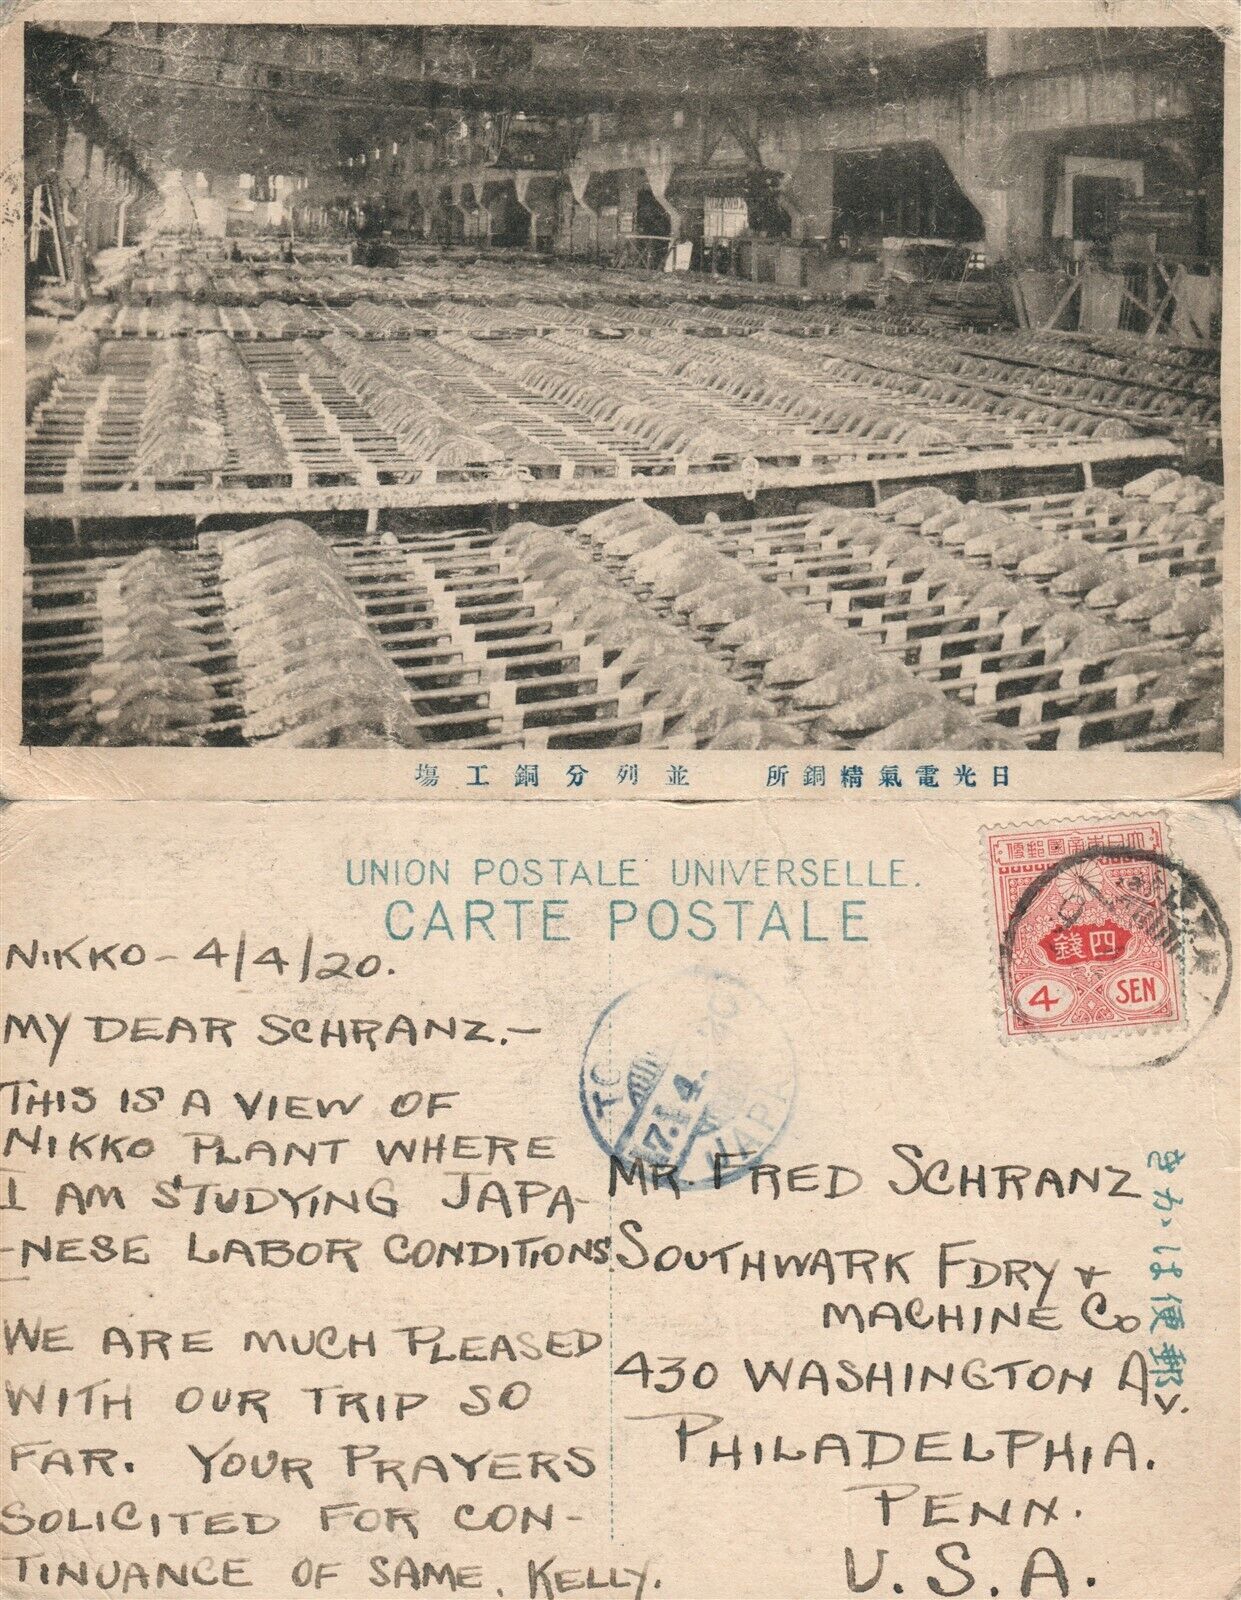 日光電氣精銅所 並列分銅工塲
UNION POSTALE UNIVERSELLE.
CARTE POSTALE
大日本帝國郵便
四錢
4 SEN
JAPAN
郵便はかき
NIKKO - 4/4/20.
MY DEAR SCHRANZ.-
THIS IS A VIEW OF
NIKKO PLANT WHERE
I AM STUDYING JAPA-
-NESE LABOR CONDITIONS.
WE ARE MUCH PLEASED
WITH OUR TRIP SO
FAR. YOUR PRAYERS
SOLICITED FOR CON-
TINUANCE OF SAME. KELLY.
MR. FRED SCHRANZ
SOUTHWARK FDRY &
MACHINE CO
430 WASHINGTON AV.
PHILADELPHIA.
PENN.
U.S.A.